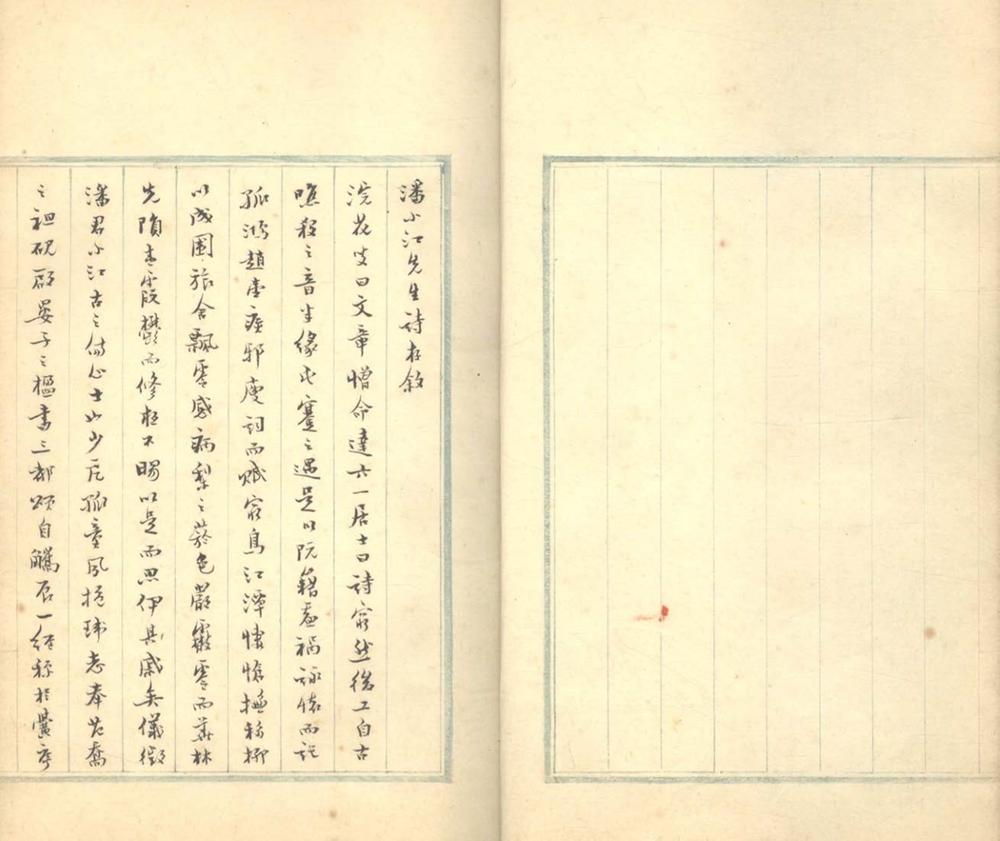 潘小江先生詩存敘
浣花叟曰文章憎命達六一居士曰詩窮然後工自古
噍殺之音半緣屯蹇之遇是以阮籍憂禍詠懷而託
孤鴻趙壹疾邪廋詞而賦窮鳥江潭悽愴攄柳
以成圍旅舍飄零感病梨之菸色嚴霰零而蕙林
先隕青霞鬱而修柱不暘以是而思伊其戚矣儀徵
潘君小江古之傷心士也少丁孤童夙抱瑋志奉
之祖硯鄙晏子之楹書三都頌自觿辰一經稱於黌序